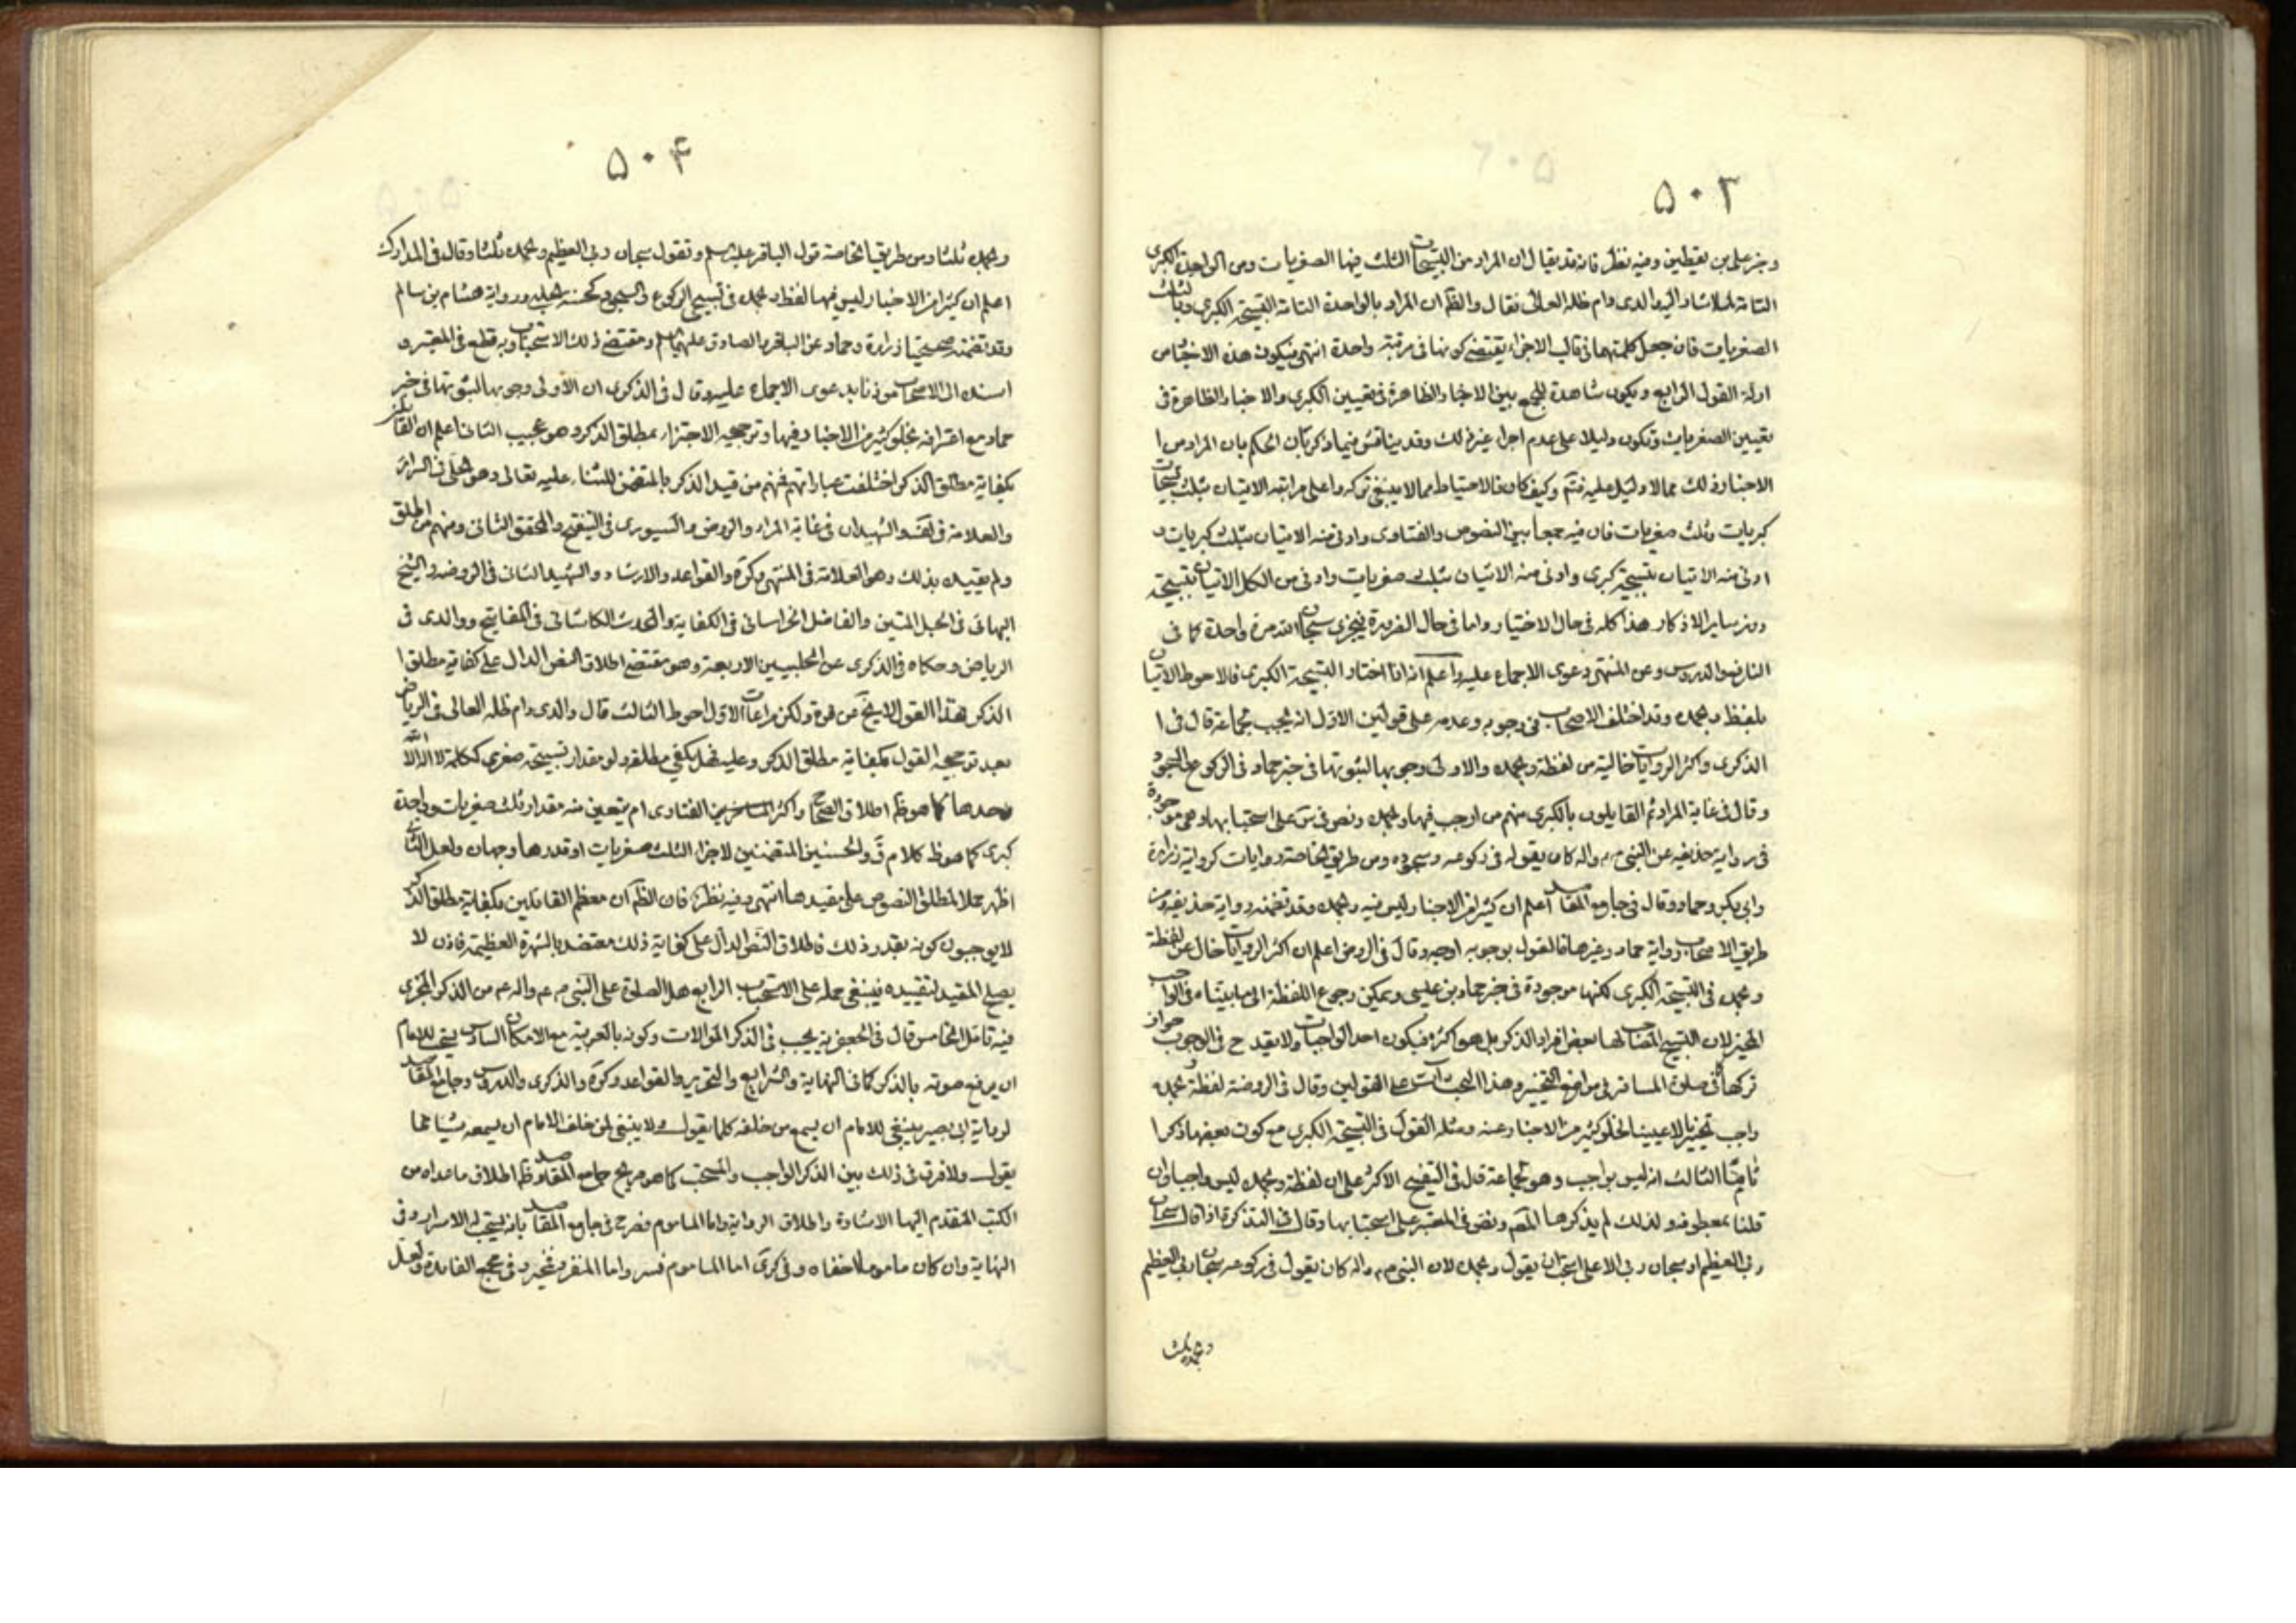 ۵۰۳
وخبر علی بن یقطین وفیه نظر فانه قد یقال ان المراد من التسبیحات الثلث فیها الصغریات ومن الواحدة الکبری
التامة الیه والدی دام ظله العالی فقال والظ ان المراد بالواحدة التامة التسبیحة الکبری وبالثلث
الصغریات فان جعل کلمتهما فی قالب الاجزاء یقتضی کونها فی مرتبة واحدة انتهی فیکون هذه الاخبار من
ادلة القول الرابع ویکون شاهدة للجمع بین الاخبار الظاهرة فی تعیین الکبری والاخبار الظاهرة فی
تعیین الصغریات وتکون دلیلا علی عدم اجزاء غیر ذلک وقد یناقش فیما ذکر بان الحکم بان المراد من ا
الاخبار ذلک مما لا دلیل علیه فتم وکیف کان فالاحتیاط مما لا ینبغی ترکه واعلی مراتبه الاتیان بثلث تسبیحات
کبریات وثلث صغریات فان فیه جمعا بین النصوص والفتاوی وادنی منه الاتیان بثلث کبریات و
ادنی منه الاتیان بتسبیحة کبری وادنی منه الاتیان بثلث صغریات وادنی من الکل الاتیان بتسبیحة
ومن سایر الاذکار هذا کله فی حال الاختیار واما فی حال الضرورة فیجزی سبحان الله مرة واحدة کما فی
النافع والدروس وعن المنتهی دعوی الاجماع علیه واعلم انه اذا اختار التسبیحة الکبری فالاحوط الاتیان
بلفظ وبحمده وقد اختلف الاصحاب فی وجوبه وعدمه علی قولین الاول انه یجب لجماعة قال فی ا
الذکری واکثر الروایات خالیة من لفظة وبحمده والاولی وجوبها لثبوتها فی خبر حماد فی الرکوع والسجود
وقال فی غایة المراد ثم القایلون بالکبری منهم من اوجب فیها وبحمده ونص فی علی استحبابها وهی موجودة
فی روایة حذیفه عن النبی ص واله کان یقوله فی رکوعه وسجوده ومن طریق الخاصة روایات کروایة زرارة
وابی بکر وحماد وقال فی جامع المقاصد اعلم ان کثیرا من الاخبار لیس فیه وبحمده وقد تضمنه روایة حذیفه ومن
طریق الاصحاب روایة حماد وغیرها فالقول بوجوبه اوجه وقال فی الروض اعلم ان اکثر الروایات خال عن لفظة
وبحمده فی التسبیحة الکبری لکنها موجودة فی خبر حماد بن عیسی ویمکن رجوع اللفظة الی ما بیناه فی الواجب
المخیر لان التسبیح المصاحب لها بعض افراد الذکر بل هو اکثره فیکون احد الواجبات ولا یقدح فی الوجوب جواز
ترکها کما فی صلوة المسافر فی مواضع التخییر وهذا البحث آت علی القولین وقال فی الروضة لفظة وبحمده
واجب تخییرا لا عینا لخلو کثیر من الاخبار عنه ومثله القول فی التسبیحة الکبری مع کون بعضها ذکرا
تاما الثالث انه لیس بواجب وهو لجماعة قال فی التنقیح الاکثر علی ان لفظة وبحمده لیس واجبا وان
قلنا بمعطوفه ولذلک لم یذکرها المصم ونص فی المعتبر علی استحبابها وقال فی التذکرة اذا قال سبحان
ربی العظیم او سبحان ربی الاعلی استحب ان یقول وبحمده لان النبی ص واله کان یقول فی رکوعه سبحان ربی العظیم
وبحمده ثلث
۵۰۴
وبحمده ثلثا ومن طریق الخاصة قول الباقر علیه السلم وتقول سبحان ربی العظیم وبحمده ثلثا وقال فی المدارک
اعلم ان کثیرا من الاخبار لیس فیها لفظ وبحمده فی تسبیح الرکوع والسجود کحسنة الحلبی وروایة هشام بن سالم
وقد تضمنه صحیحتا زرارة وحماد عن الباقر والصادق علیهما السلم ومقتضی ذلک الاستحباب وبه قطع فی المعتبر و
اسنده الی الاصحاب مؤذنا بدعوی الاجماع علیه وقال فی الذکری ان الاولی وجوبها لثبوتها فی خبر
حماد مع اعترافه بخلو کثیر من الاخبار فیها وترجیحه الاجتزاء بمطلق الذکر وهو عجیب الثانی اعلم ان القائلین
بکفایة مطلق الذکر اختلفت عباراتهم فمنهم من قید الذکر بالمتضمن للثناء علیه تعالی وهو الحلی فی السرائر
والعلامة فی والشهیدان فی غایة المراد والروض والسیوری فی التنقیح والمحقق الثانی ومنهم من اطلق
ولم یقیده بذلک وهو العلامة فی المنتهی وکرة والقواعد والارشاد والشهید الثانی فی الروضه والشیخ
البهائی فی الحبل المتین والفاضل الخراسانی فی الکفایة والمحدث الکاشانی فی المفاتیح ووالدی فی
الریاض وحکاه فی الذکری عن الحلبیین الاربعة وهو مقتضی اطلاق النص الدال علی کفایة مطلق ا
الذکر فهذا القول لا یخ عن قوة ولکن مراعات الاول احوط الثالث قال والدی دام ظله العالی فی الریاض
بعد ترجیحه القول بکفایة مطلق الذکر وعلیه فهل یکفی مطلقه ولو مقدار تسبیحة صغری ککلمة لا اله الا الله
وحدها کما هو ظ اطلاق الصحاح واکثر الفتاوی ام یتعین منه مقدار ثلث صغریات وواحدة
کبری کما هو ظ کلام ق والحسنین المتضمنین لاجزاء الثلث صغریات او قدرها وجهان ولعل الثانی
اظهر حملا لمطلق النصوص علی مقیدها انتهی وفیه نظر فان الظ ان معظم القائلین بکفایة مطلق الذکر
لا یوجبون کونه بقدر ذلک فاطلاق النص الدال علی کفایة ذلک معتضد بالشهرة العظیمة فاذن لا
یصلح المقید لتقییده فینبغی حمله علی الاستحباب الرابع هل الصلوة علی النبی ص واله من الذکر المجزی
فیه تامل الخامس قال فی الجعفریة یجب فی الذکر الموالات وکونه بالعربیة مع الامکان السادس یستحب للامام
ان یرفع صوته بالذکر کما فی النهایة والشرایع والتحریر والقواعد وکرة والذکری والدروس وجامع المقاصد
لروایة ابی بصیر ینبغی للامام ان یسمع من خلفه کلما یقول ولا ینبغی لمن خلف الامام ان یسمعه شیئا مما
یقول ولا فرق فی ذلک بین الذکر الواجب والمستحب کما هو صریح جامع المقاصد وظ اطلاق ما عداه من
الکتب المتقدم الیها الاشارة واطلاق الروایة واما الماموم فصرح فی جامع المقاصد بانه یستحب له الاسرار وفی
النهایة وان کان ماموما اخفاه وفی کری اما الماموم فیسر واما المنفرد فمخیر وفی مجمع الفائدة ولعل